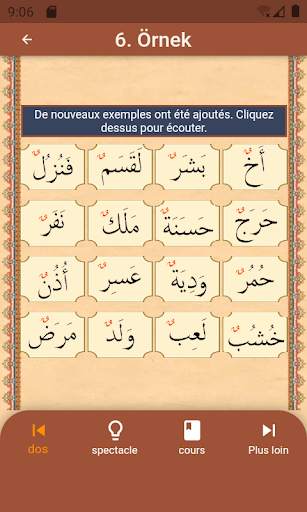 9:06
6. Örnek
De nouveaux exemples ont été ajoutés. Cliquez
dessus pour écouter.
أَخٌ بَشَرٌ لَقَسَمٌ فَنُزُلٌ
حَرَجٌ حَسَنَةٌ مَلَكٌ نَفَرٌ
حُمُرٌ وَدِيَةٌ عَسِرٌ أُذُنٌ
خُشُبٌ لَعِبٌ وَلَدٌ مَرَضٌ
dos spectacle cours Plus loin